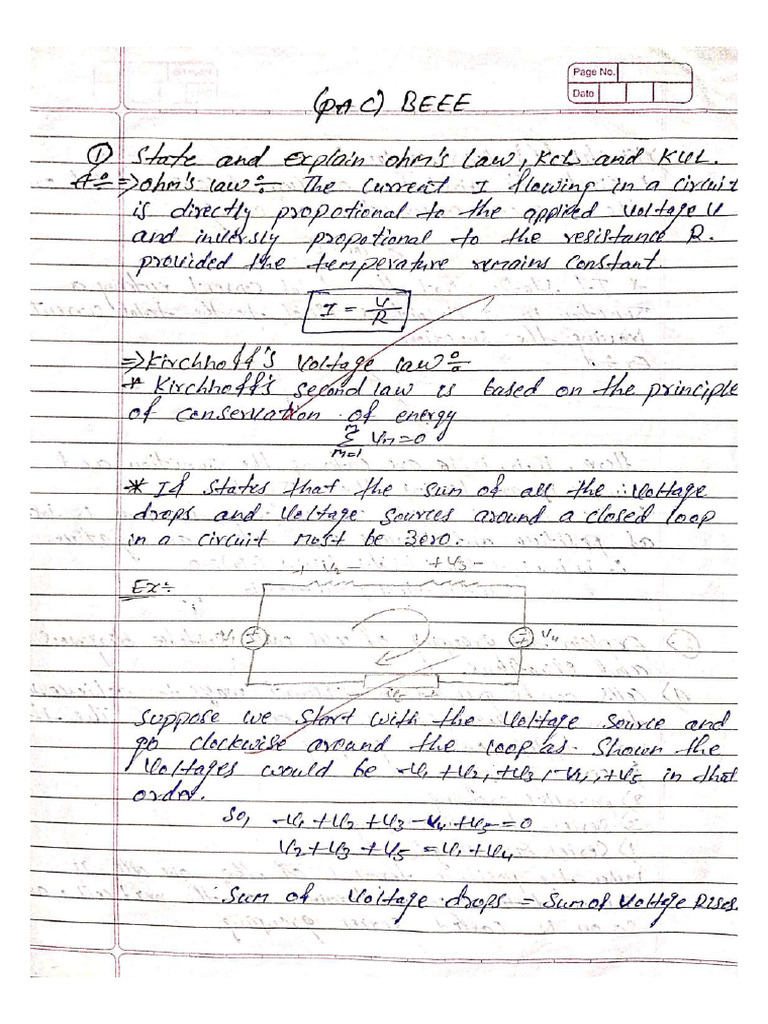 Page No.
Date
(PAC) BEEE
① State and explain ohm's Law, KCL and KVL.
A÷ => ohm's law÷ The current I flowing in a circuit
is directly propotional to the applied Voltage V
and inversly propotional to the resistance R.
provided the temperature remains constant.
I = V/R
=> Kirchhoff's Voltage law÷
* Kirchhoff's second law is based on the principle
of conservation of energy
m
Σ Vm=0
m=1
* If states that the sum of all the Voltage
drops and Voltage sources around a closed loop
in a circuit must be Zero.
+ V2 - + V3 -
Ex÷
V4
V5
suppose we start with the Voltage source and
go clockwise around the loop as. Shown the
Voltages would be -V1 + V2, +V3, -V4, +V5 in that
order.
So, -V1 + V2 + V3 - V4 + V5 = 0
V2 + V3 + V5 = V1 + V4
Sum of Voltage drops = Sum of Voltage Rises.